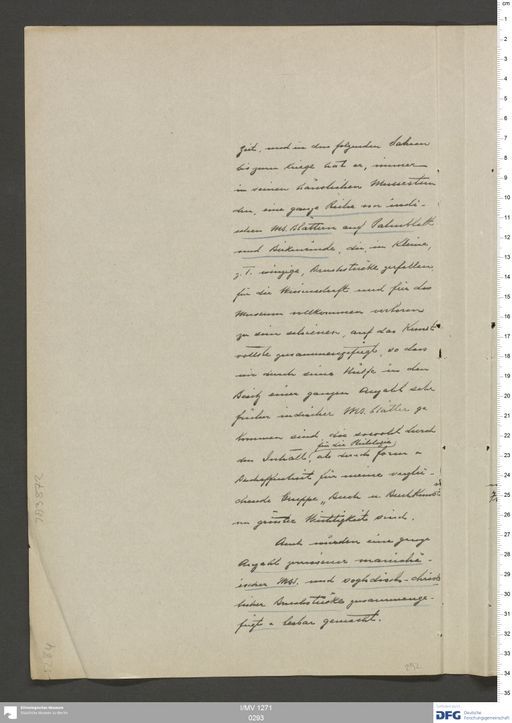 Zeit, und in den folgenden Jahren
bis zum Kriege hat er, immer
in seinen häuslichen Mussestun
den, eine ganze Reihe von indi-
schen MS. Blättern auf Palmblatt
und Birkenrinde, die, in kleine,
z. T. winzige, Bruchstücke zerfallen
für die Wissenschaft und für das
Museum vollkommen verloren
zu sein schienen, auf das Kunst
vollste zusammengefügt, so dass
wir durch seine Hülfe in den
Besitz einer ganzen Anzahl sehr
früher indischer MS. Blätter ge
kommen sind, die sowohl durch
für die Philologie
den Inhalt, als durch Form u
Beschaffenheit für meine verglei-
chende Gruppe „Buch u. Buchkunst"
von grösster Wichtigkeit sind.
Auch wurden eine ganze
Anzahl manichä-
ischer MSS. und soghdisch-christ
licher Bruchstücke zusammenge-
fügt u. lesbar gemacht.
292
Ethnologisches Museum
Staatliche Museen zu Berlin
I/MV 1271
0293
DFG Deutsche
Forschungsgemeinschaft
cm
1
2
3
4
5
6
7
8
9
10
11
12
13
14
15
16
17
18
19
20
21
22
23
24
25
26
27
28
29
30
31
32
33
34
35